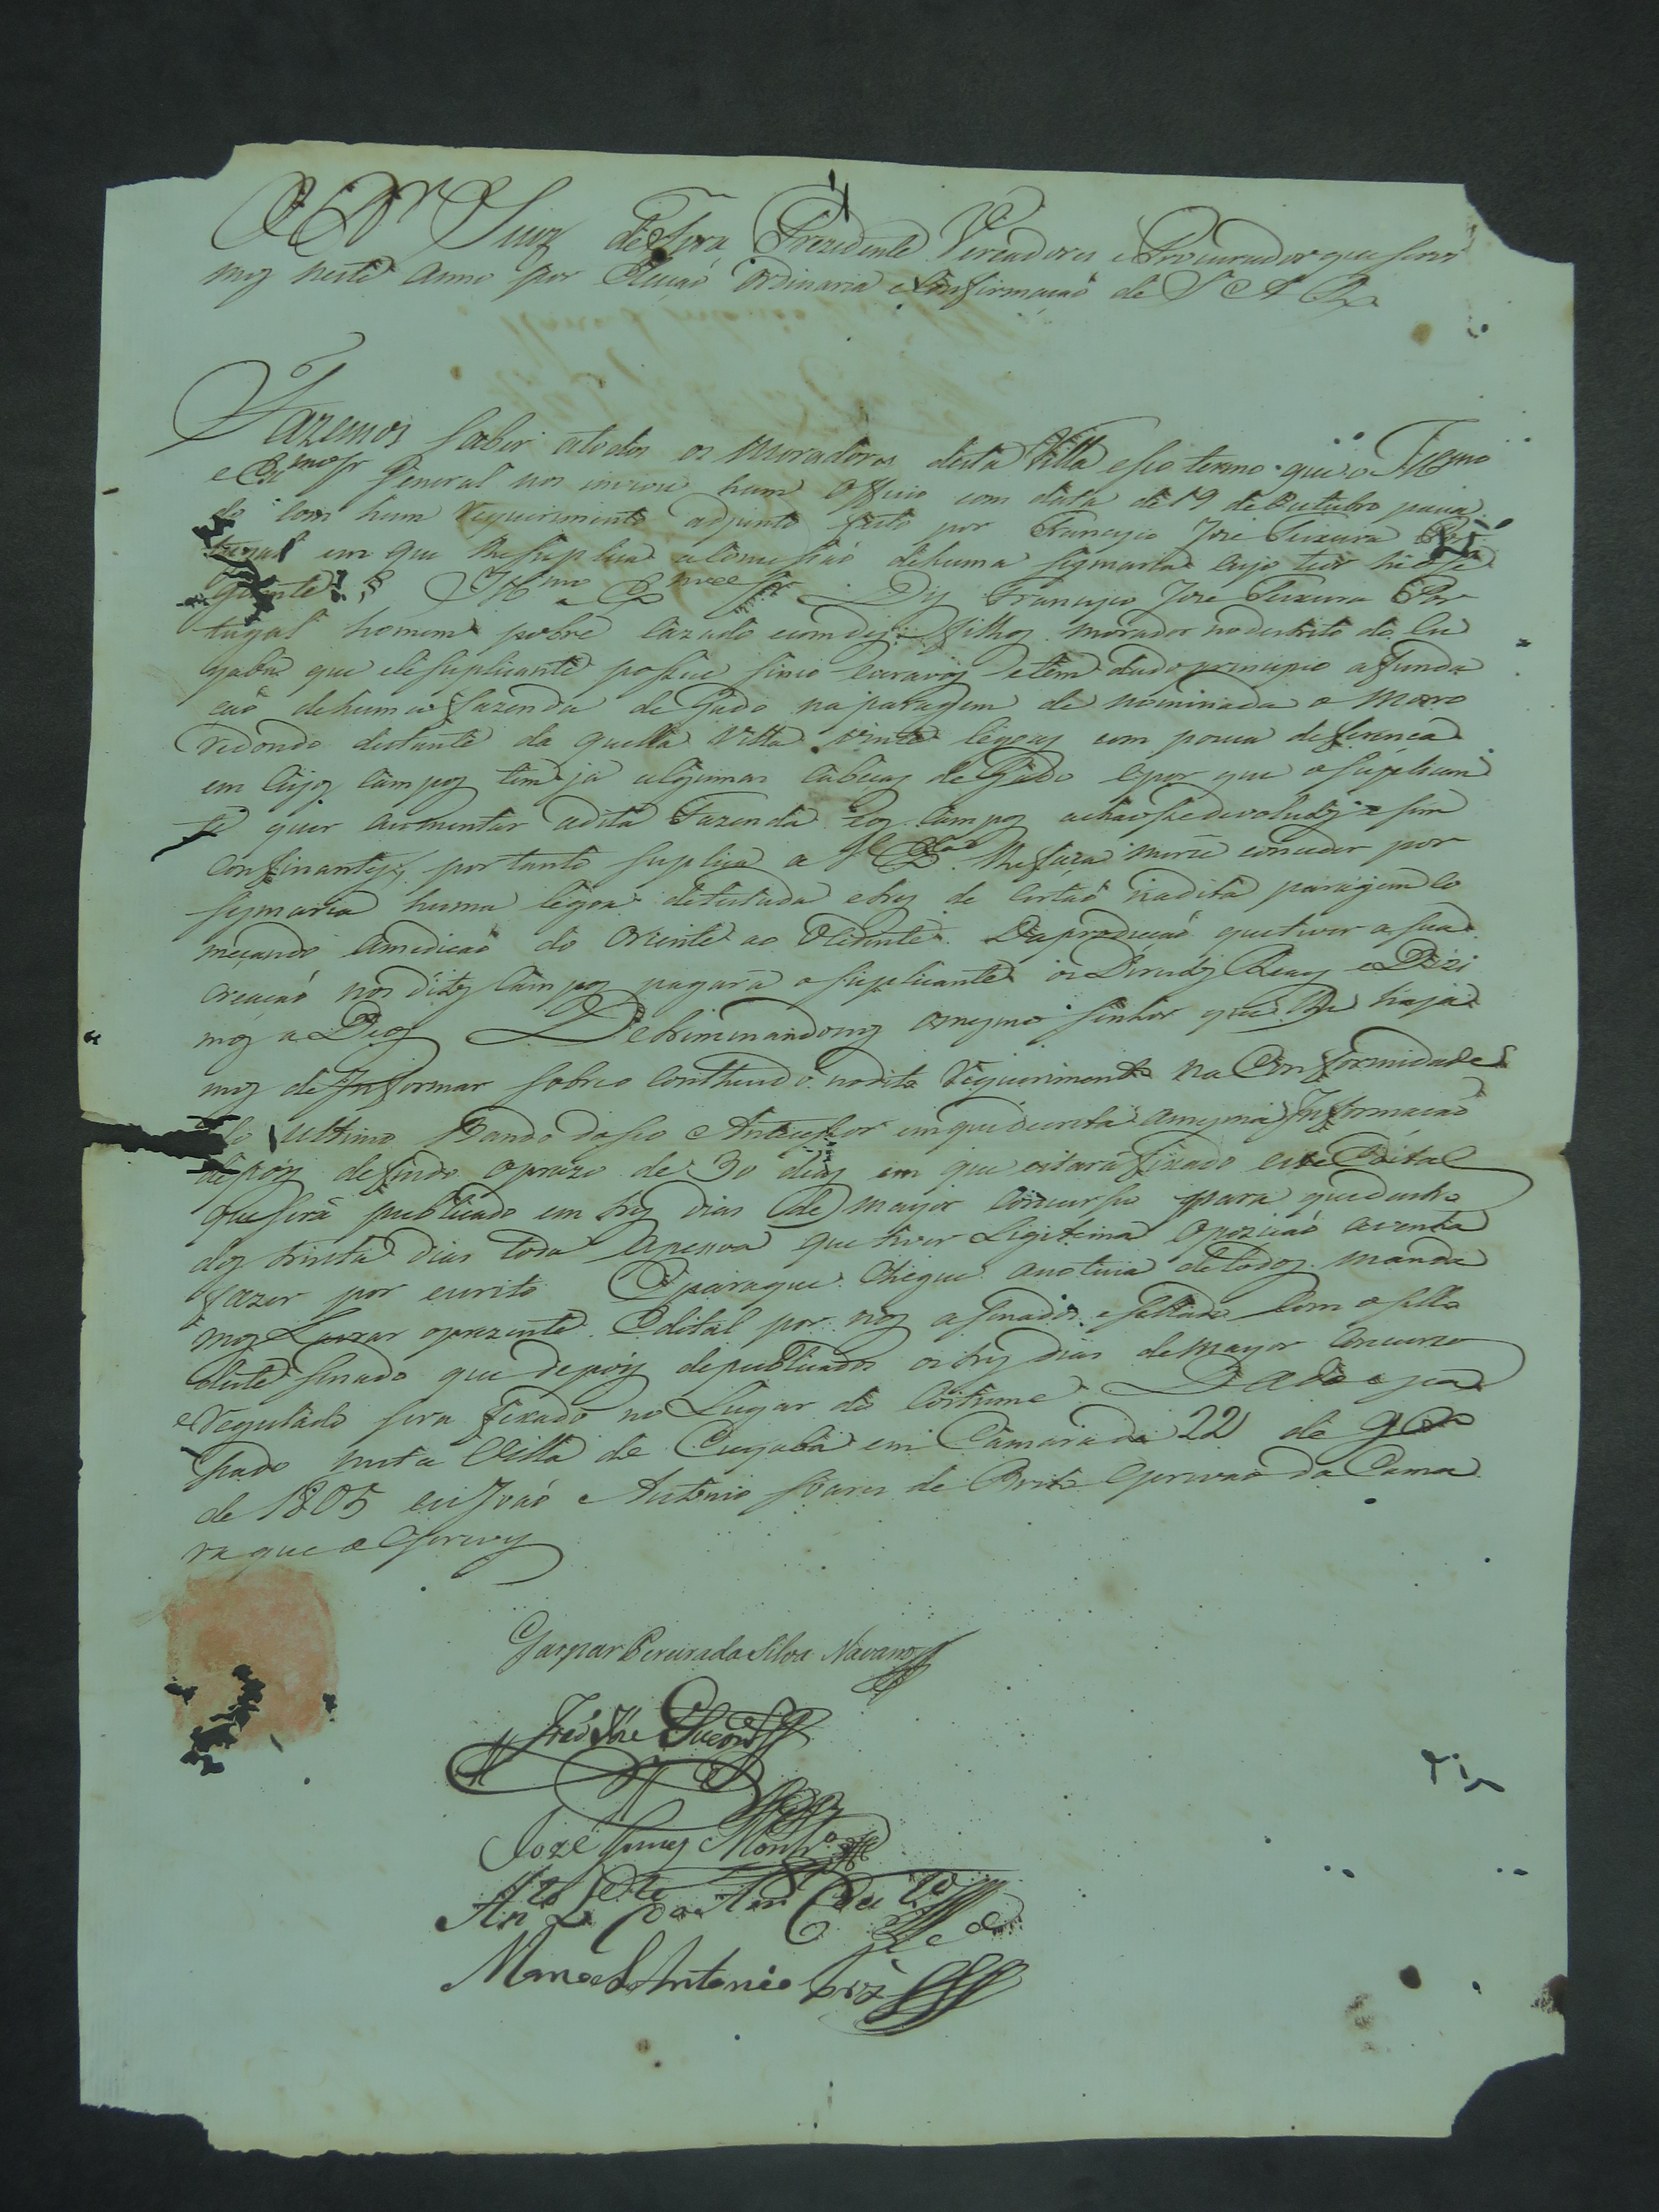 O D.r Juiz de Fora Prezidente Vereadores e Procurador que servi
mos neste anno por Eleiçaõ ordinaria e Confirmaçaõ de S A R
Fazemos saber atodos os moradores desta Villa eseo termo que o Ill.mo
e Ex.mo Sr General nos inviou hum Officio com data de 19 de Outubro paça
do com hum Requerimento adjunto feito por Francisco Joze Teixeira Por
tugal em que lhe suplica a Comcessaõ dehuma sigmaria cujo teor he ose
guinte Ill.mo e Ex.mo Sr Diz Francisco Joze Teixeira Por
tugal homem pobre cazado comdez filhos morador nodestrito do Cu
yabá que elesuplicante possue sinco escravos etem dado principio afunda
çaõ dehuma fazenda de Gado na paragem de nominada o Morro
redondo distante da quella Villa vinte legoas com pouca deferença
em cujos campos tem ja algumas cabeças de Gado epor que osuplican
te quer aumentar adita Fazenda eos campos achaose devolutos esem
confinantes, por tanto suplica a V Ex.a lhefaça mercê conceder por
sismaria huma legoa detestada etres de certaõ nadita paragem co
meçando amediçaõ do Oriente ao Ocidente. Daproduçaõ quetiver asua
creaçaõ nos ditos campos pagará osuplicante os Direitos Reaes e Dizi
mos a Deos Detreminandonos omesmo senhor que lhe haja
mos de Informar sobreo contheudo nodito Requerimento na Conformidade
do ultimo Bando doseo Antecessor emquedecreta amesma Informaçaõ
depois defindo oprazo de 30 dias em que estará fixado este Edital
queserá publicado em tres dias de mayor concurso para quedentro
dos trinta dias toda apessoa que tiver Ligitima Opoziçaõ avenha
fazer por escrito Eparaque chegue anoticia detodos manda
mos Lavrar oprezente Edital por nos asinado eSellado com osello
deste senado que depois depublicados os tres dias demayor concurso
e Registado sera fixado no Lugar do Costume Dado epas
sado nesta Villa de Cuyabá em Camara de 22 de 9br.o
de 1805 eu Joaõ Antonio Soares de Brito Escrivaõ da Cama
ra que o Escrevy
Gaspar Pereira da Silva Navarro
Joze Gomes Montr.o
Manoel Antonio